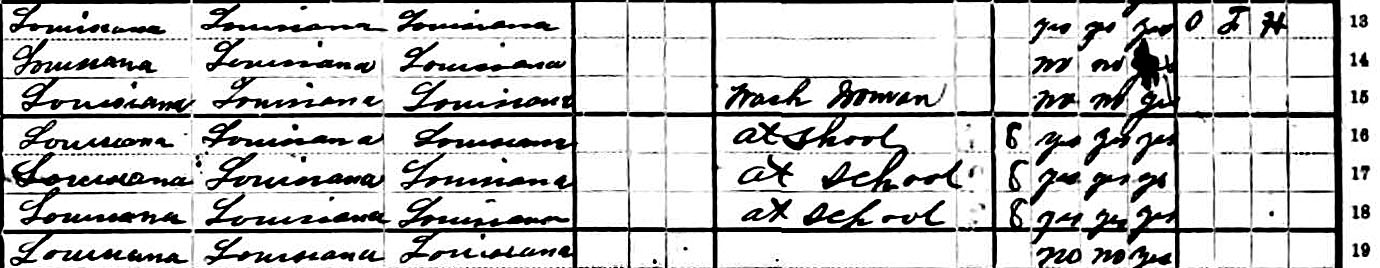 Louisiana Louisiana Louisiana yes yes yes O F H 13
Louisiana Louisiana Louisiana no no 14
Louisiana Louisiana Louisiana Wash Woman no no yes 15
Louisiana Louisiana Louisiana at shool 8 yes yes yes 16
Louisiana Louisiana Louisiana at school 8 yes yes yes 17
Louisiana Louisiana Louisiana at school 8 yes yes yes 18
Louisiana Louisiana Louisiana no no yes 19